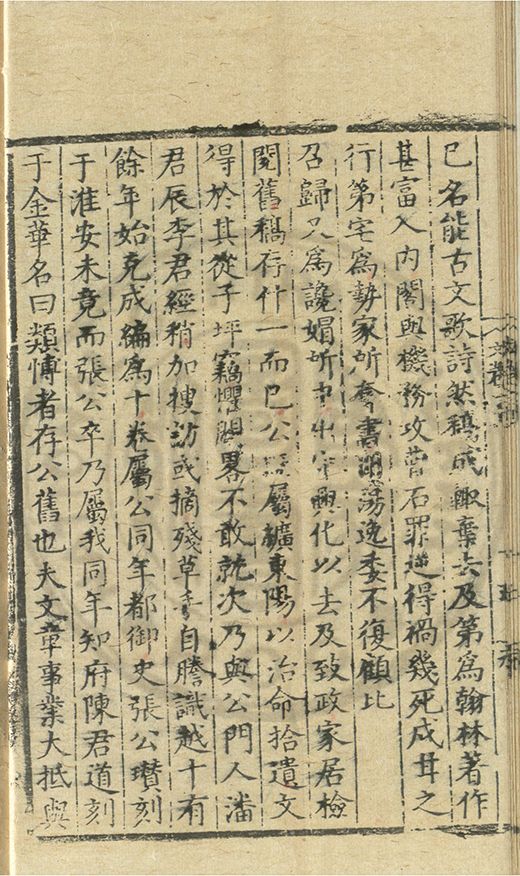 已名能古文歌詩然稿成輒棄去及第為翰林著作
甚富入內閣與機務攻曹石罪逆得禍幾死戍甘之
行第宅為勢家所奪書湖蕩逸委不復顧比
召歸又為讒媢所中出守興化以去及致政家居檢
閱舊稿存什一而已公屬纊東陽以治命拾遺文
得於其從子坪竊懼闕畧不敢就次乃與公門人潘
君辰李君經稍加搜訪或摘殘草手自謄識越十有
餘年始克成編為十卷屬公同年都御史張公瓚刻
于淮安未竟而張公卒乃屬我同年知府陳君道刻
于金華名曰類博者存公舊也夫文章事業大抵與